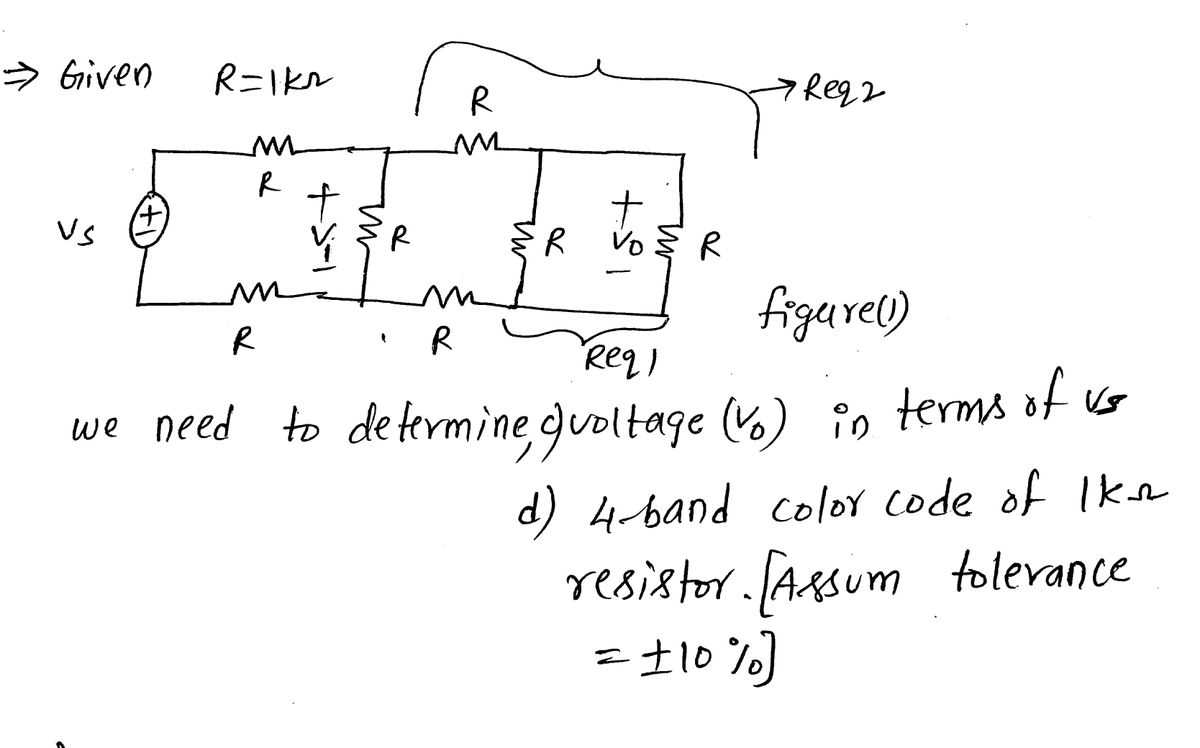 ⇒ Given R=1kΩ
→ Req2
R
R
+
Vs
+
V1
−
R
R
+
Vo
−
R
R
R
Req1
figure(1)
we need to determine, c) voltage (Vo) in terms of vs
d) 4-band color code of 1kΩ
resistor. [Assum tolerance
= ±10%]